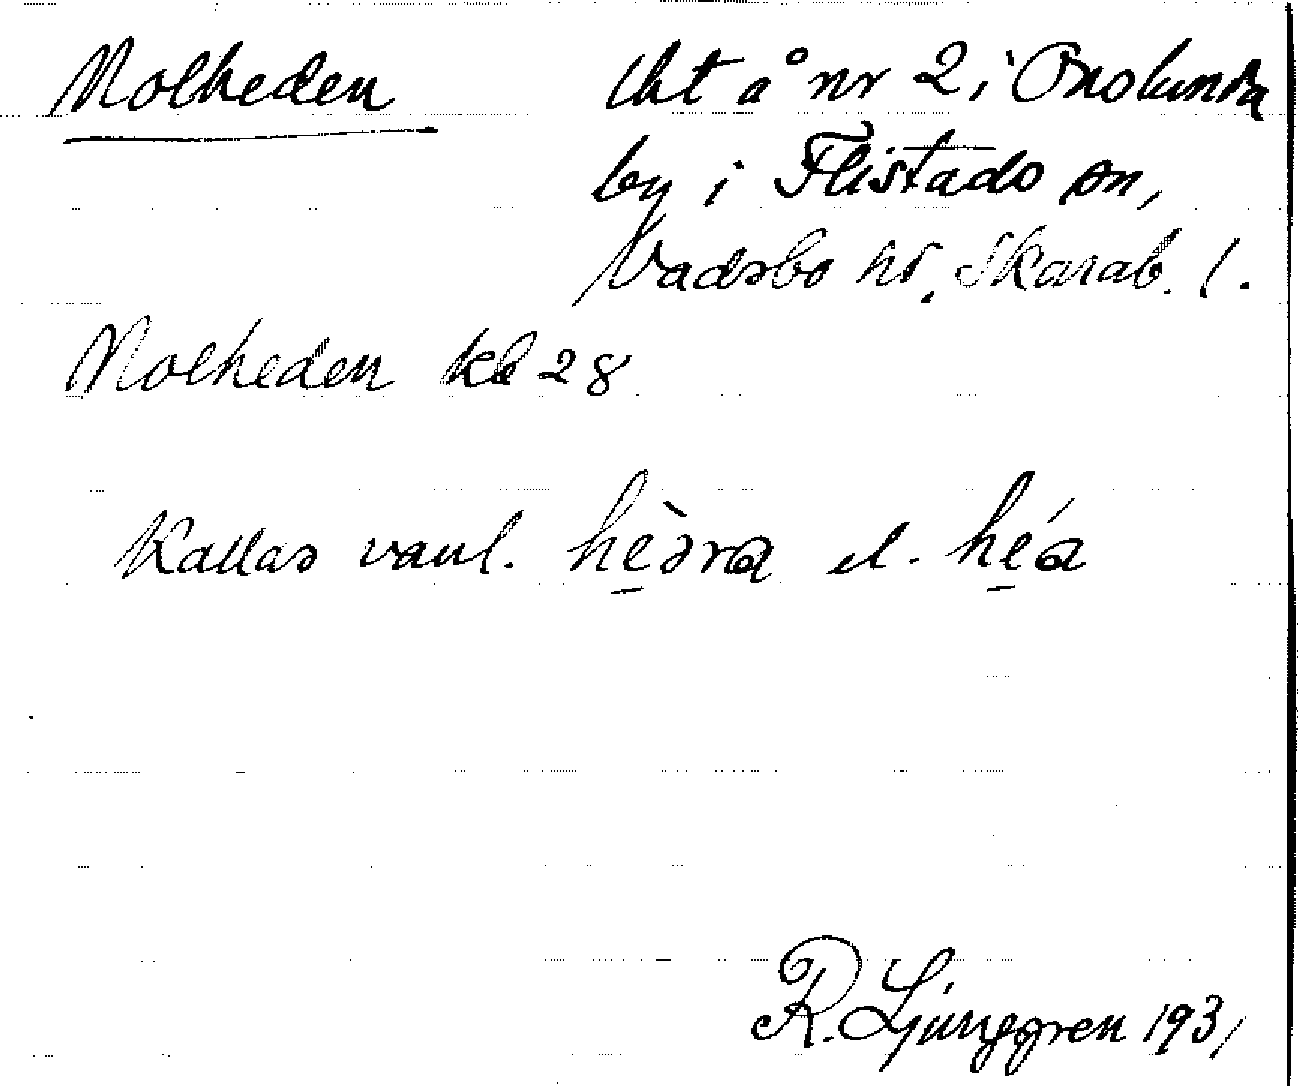 Nolheden
lht å nr 2 i Onslunda
by i Flistads sn,
Vadsbo hd, Skarab. l.
Nolheden kb 28
Kallas vanl. hèdra el. héa
R. Ljunggren 1931